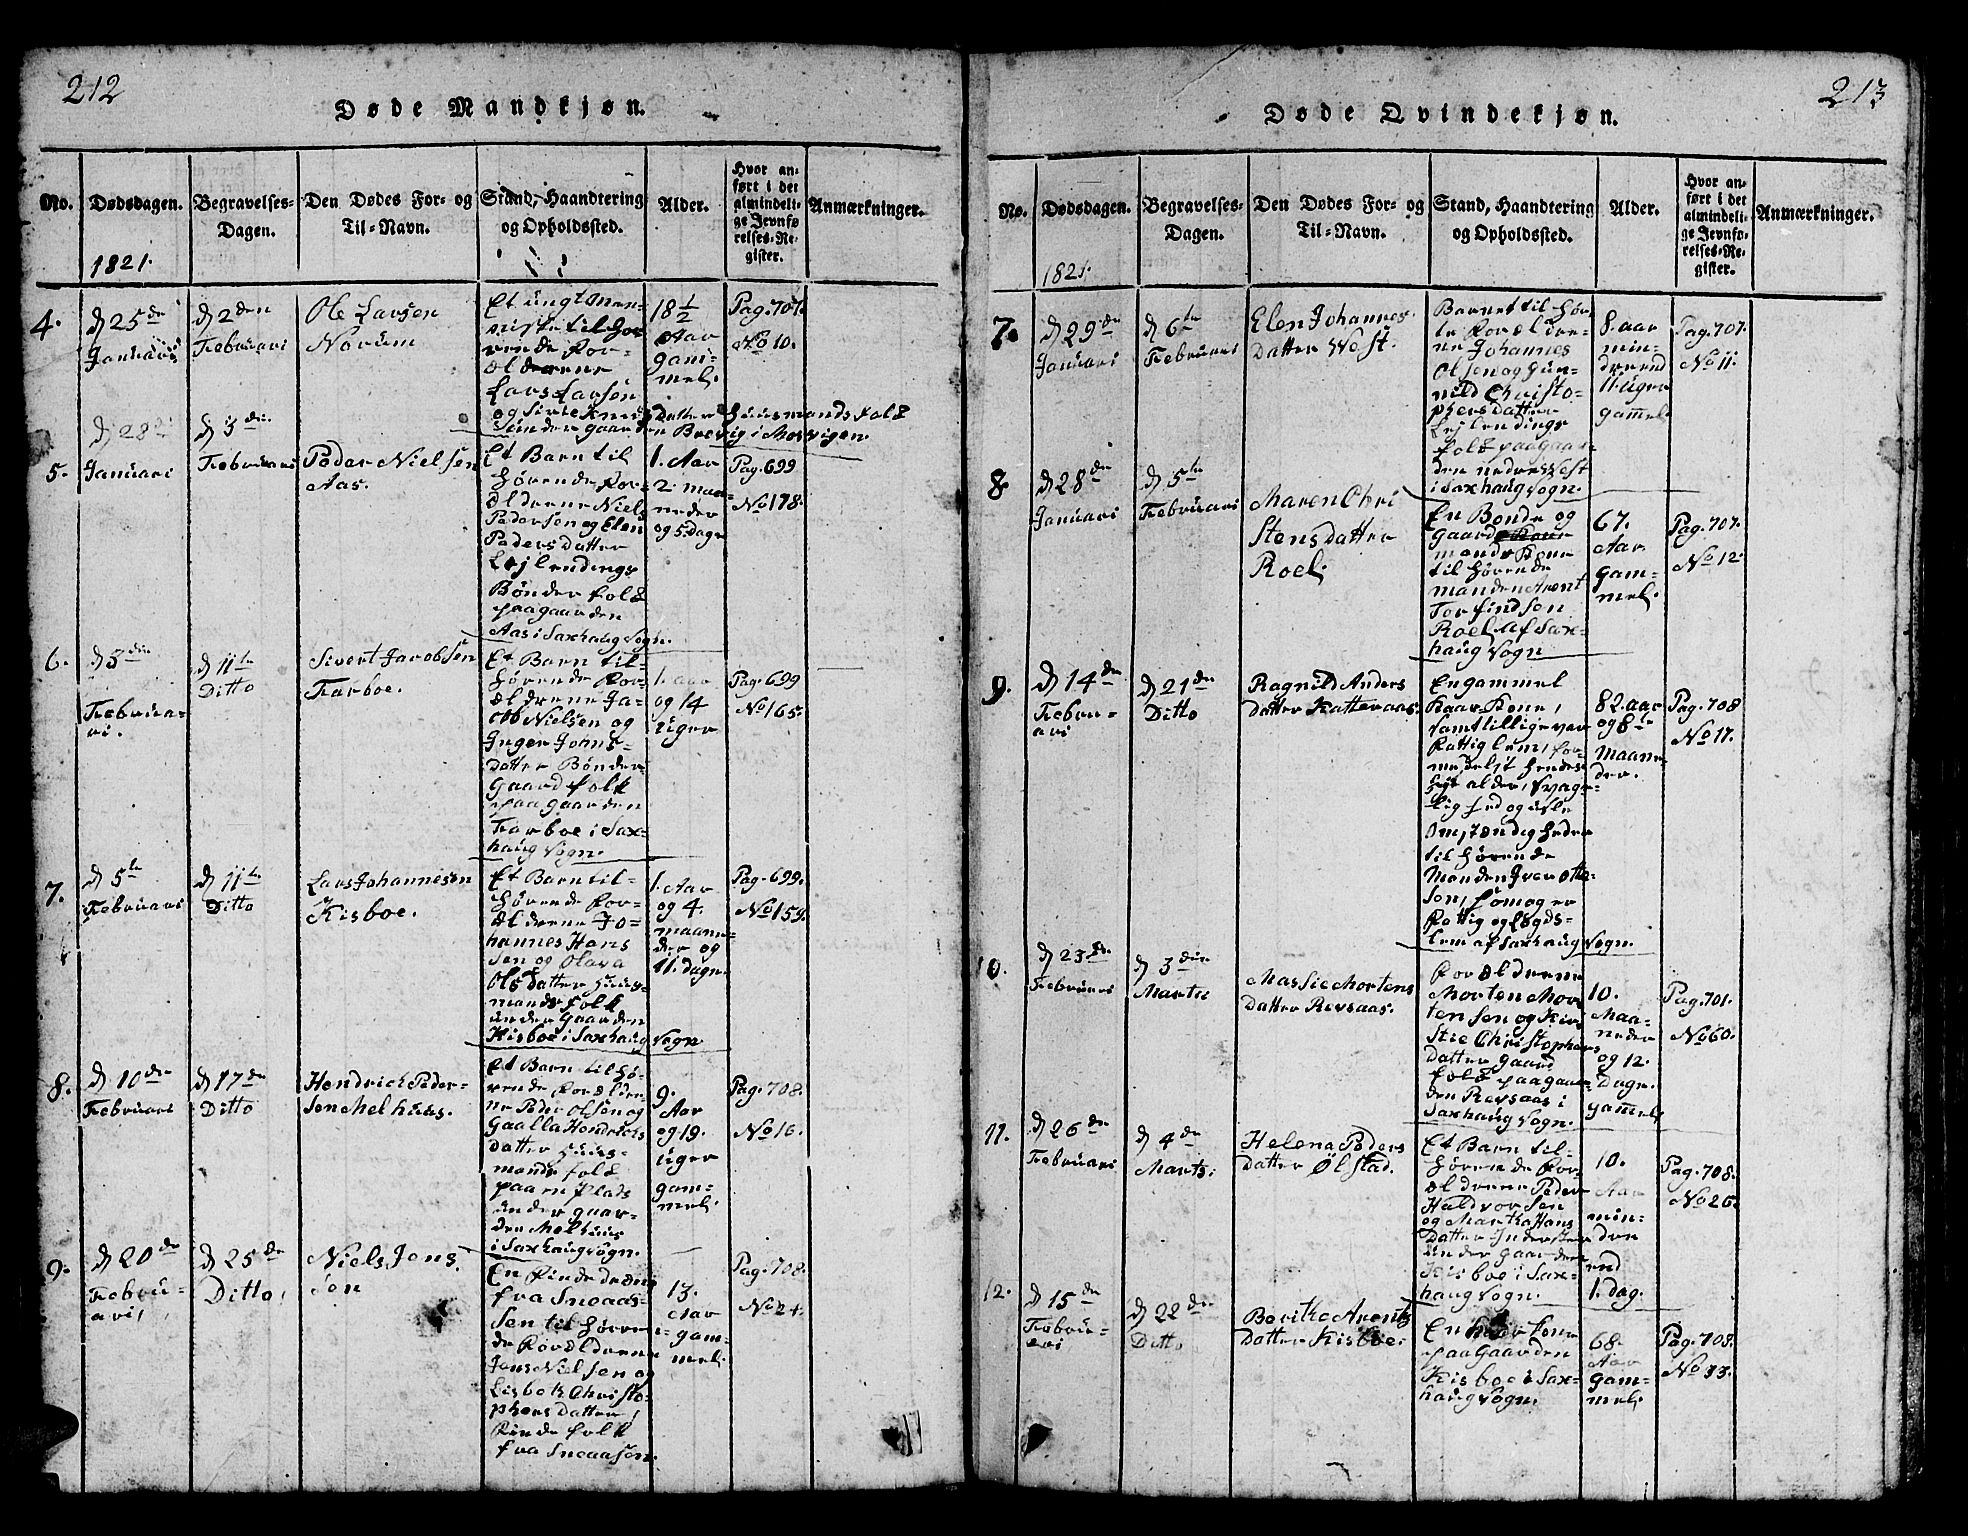 212
Døde Mandkjøn.
No.
Dødsdagen.
1821.
Begravelses-
Dagen.
Den Dødes For- og
Til-Navn.
Stand, Haandtering
og Opholdssted.
Alder.
Hvor an-
ført i det
almindeli-
ge Jevnfø-
relses-Re-
gister.
Anmærkninger.
4.
d 25de
Januari
d 2den
Februari
Ole Larsen
Norum
Et ungt Men-
niske til hø-
rende For-
ældrene
Lars Larsen
og Sirie Knuds Datter Huusmands folk
under Gaarden Brevig i Mosvigen.
18 1/2
Aar
gam-
mel.
Pag. 707.
No 10.
5.
d 28de
Januari
d 3die
Februari
Peder Nielsen
Aas.
Et Barn til
hørende For-
ældrene Niels
Pedersen og Elen
Peders datter
Lejlendings
Bønder folk
paa gaarden
Aas i Saxhaug Sogn.
1. Aar
2. maa-
neder
og 5. Dage
Pag. 699
No 178.
6.
d 3die
Februa-
ri.
d 11te
Ditto
Sivert Jacobsen
Farboe.
Et Barn til-
hørende For-
ældrene Ja-
cob Nielsen og
Inger Johns-
datter Bønder
Gaard folk
paa gaarden
Farboe i Sax-
haug Sogn.
1. aar
og 14
uger
Pag. 699
No 165.
7.
d 5te
Februari
d 11te
Ditto
Lars Johannesen
Kisboe.
Et Barn til-
hørende For-
ældrene Jo-
hannes Hans
sen og Olava
Ols datter Huus-
mands folk
under Gaarden
Kisboe i Saxhaug Sogn
1. Aar
og 4.
maane-
der og
11. dage.
Pag. 699.
No 159.
8.
d 10de
Februari
d 17de
Ditto
Hendrich Peder-
sen Melhuus.
Et Barn til hø-
rende Forældre-
ne Peder Olsen og
Gaalla Hendrichs
datter Huus-
mands folk
paa en Plads
under gaar-
den Melhuus
i Saxhaug sogn.
9.
Aar
og 19.
uger
gam-
mel.
Pag. 708.
No 16.
9.
d 20de
Februa-
ari,
d 25de
Ditto,
Niels Jens
søn
En Rinde dræng
fra Snoaas-
sen til høren
de Forældrene
Jens Nielsen og
Lisbeth Christo-
phers datter,
Rinde folk
fra Snoaasen.
13.
Aar
gam-
mel.
Pag. 708.
No 21.
213
Døde Qvindekjøn.
No.
Dødsdagen.
1821.
Begravelses-
Dagen.
Den Dødes For- og
Til-Navn.
Stand, Haandtering
og Opholdssted.
Alder.
Hvor an-
ført i det
almindeli-
ge Jevnfø-
relses-Re-
gister.
Anmærkninger.
7.
d 29de
Januari
d 6te
Februari
Elen Johannes
datter West.
Barnet til hør-
te Forældre-
ne Johannes
Olsen og Gun-
nild Christo-
phers datter
Lejlendings
folk paa gaar-
den nedre West
i Saxhaug Sogn.
8. aar
min-
dre end
11. uger
gammel
Pag. 707.
No 11.
8
d 28de
Januari
d 5te
Februari
Maren Chri
stens datter
Roel.
En Bonde og
Gaard
mands Kone
til hørende
manden Arent
Torfindsen
Roel Af Sax-
haug Sogn
67.
Aar
gam-
mel.
Pag. 707.
No 12
9.
d 14de
Febru-
ari
d 21de
Ditto
Ragnild Anders
datter Katteraas.
En gammel
Kaar-Kone,
samt tillige var
Fattig lem, for-
medelst hendes
høje alder, svage-
lighed og usle
Omstændigheder
til hørende
Manden Iver Otte-
sen, som og er
Fattig og Lægds-
lem af Saxhaug Sogn.
82. aar
og 8te
Maane-
der.
Pag. 708
No 17.
10.
d 23de
Februari
d 3die
Martii
Massie Mortens
datter Revsaas.
Forældrene
Morten Mor
tensen og Kir
stie Christophers
datter gaard
folk paa gaar-
den Revsaas i
Saxhaug Sogn.
10.
Maa-
neder
og 12.
Dage.
gammel
Pag. 701.
No 60.
11.
d 26de
Februari
d 4de
Marts.
Helena Peders
datter Ølstad.
Et Barn til-
hørende For-
ældrene Peder
Haldvorsen
og Martha Hans
datter Inderster
under Gaarden
Kisboe i Sax-
haug Sogn.
10.
Aar
min-
dre
end
1. dag.
Pag. 708.
No 26.
12.
d 15de
Febru-
ari
d 22de
Ditto
Berithe Arents
datter Kisboe.
En Kone
paa Gaarden
Kisboe i Sax-
haug Sogn.
68.
Aar
gam-
mel.
Pag. 708.
No 33.